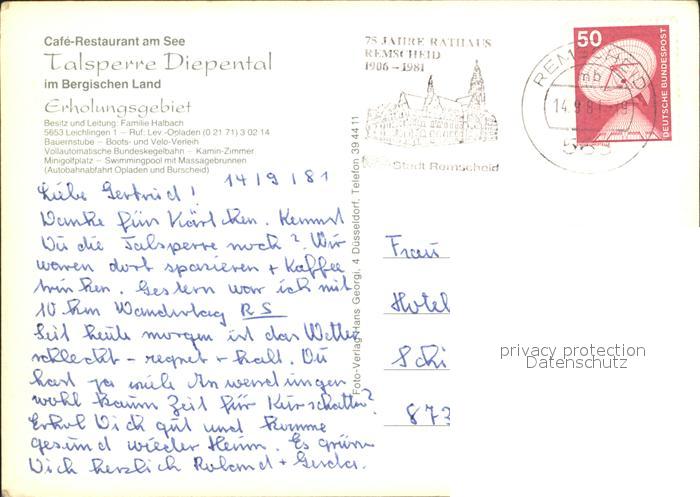 Café-Restaurant am See
Talsperre Diepental
im Bergischen Land
Erholungsgebiet
Besitz und Leitung: Familie Halbach
5653 Leichlingen 1 – Ruf: Lev.-Opladen (0 21 71) 3 02 14
Bauernstube – Boots- und Velo-Verleih
Vollautomatische Bundeskegelbahn – Kamin-Zimmer
Minigolfplatz – Swimmingpool mit Massagebrunnen
(Autobahnabfahrt Opladen und Burscheid)
14/9/81
Liebe Gertrud!
Danke für Kärtchen. Kennst
Du die Talsperre noch? Wir
waren dort spazieren + Kaffee
trinken. Gestern war ich mit
10 km Wandertag RS
Seit heute morgen ist das Wetter
schlecht – regnet + kalt. Du
hast ja viele Anwendungen
wohl kaum Zeit für Kurschatten?
Erhol Dich gut und komme
gesund wieder Heim. Es grüßen
Dich herzlich Roland + Gerda.
Foto-Verlag Hans Georgi, 4 Düsseldorf, Telefon 39 44 11
75 JAHRE RATHAUS
REMSCHEID
1906 – 1981
Stadt Remscheid
REMSCHEID
mb
14.9.81
50
DEUTSCHE BUNDESPOST
Frau
Hotel
Schi
873
privacy protection
Datenschutz